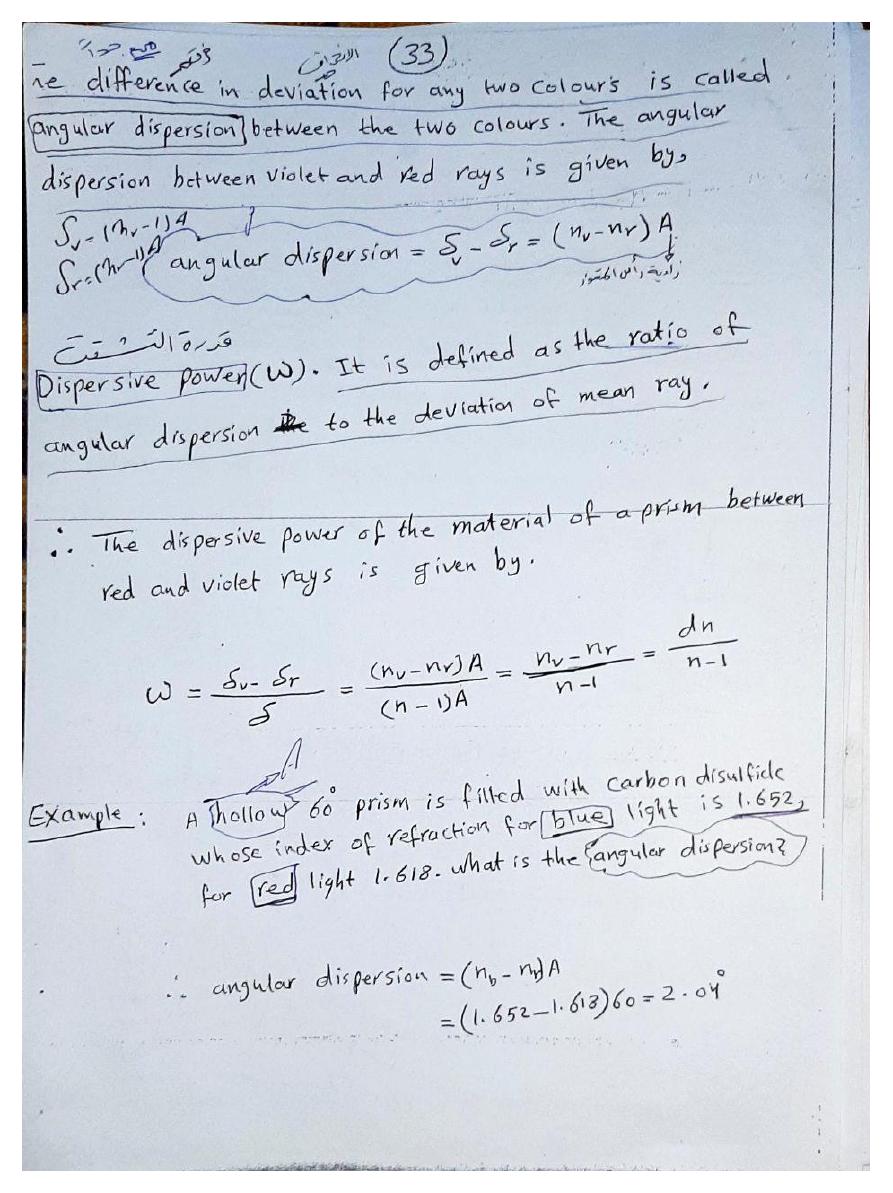 (33)
الانحراف
he difference in deviation for any two colour's is called
angular dispersion between the two colours. The angular
dispersion between violet and red rays is given by,
δv = (nv-1)A
δr = (nr-1)A angular dispersion = δv - δr = (nv-nr) A
زاوية رأس المنشور
قدرة التشتت
Dispersive Power (ω). It is defined as the ratio of
angular dispersion to the deviation of mean ray.
∴ The dispersive power of the material of a prism between
red and violet rays is given by.
ω = δv - δr / δ = (nv-nr) A / (n-1)A = nv-nr / n-1 = dn / n-1
A
Example : A hollow 60° prism is filled with carbon disulfide
whose index of refraction for blue light is 1.652,
for red light 1.618. what is the angular dispersion?
∴ angular dispersion = (nb - nr)A
= (1.652-1.618)60 = 2.04°